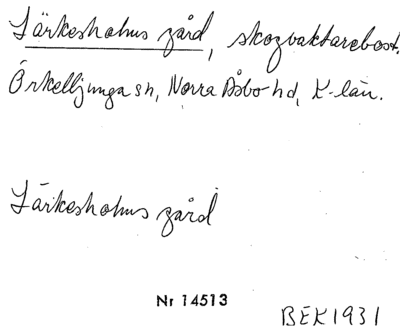 Lärkesholms gård, skogvaktarebost.
Örkelljunga sn, Norra Åsbo hd, K-län.
Lärkesholms gård
Nr 14513
BEK1931